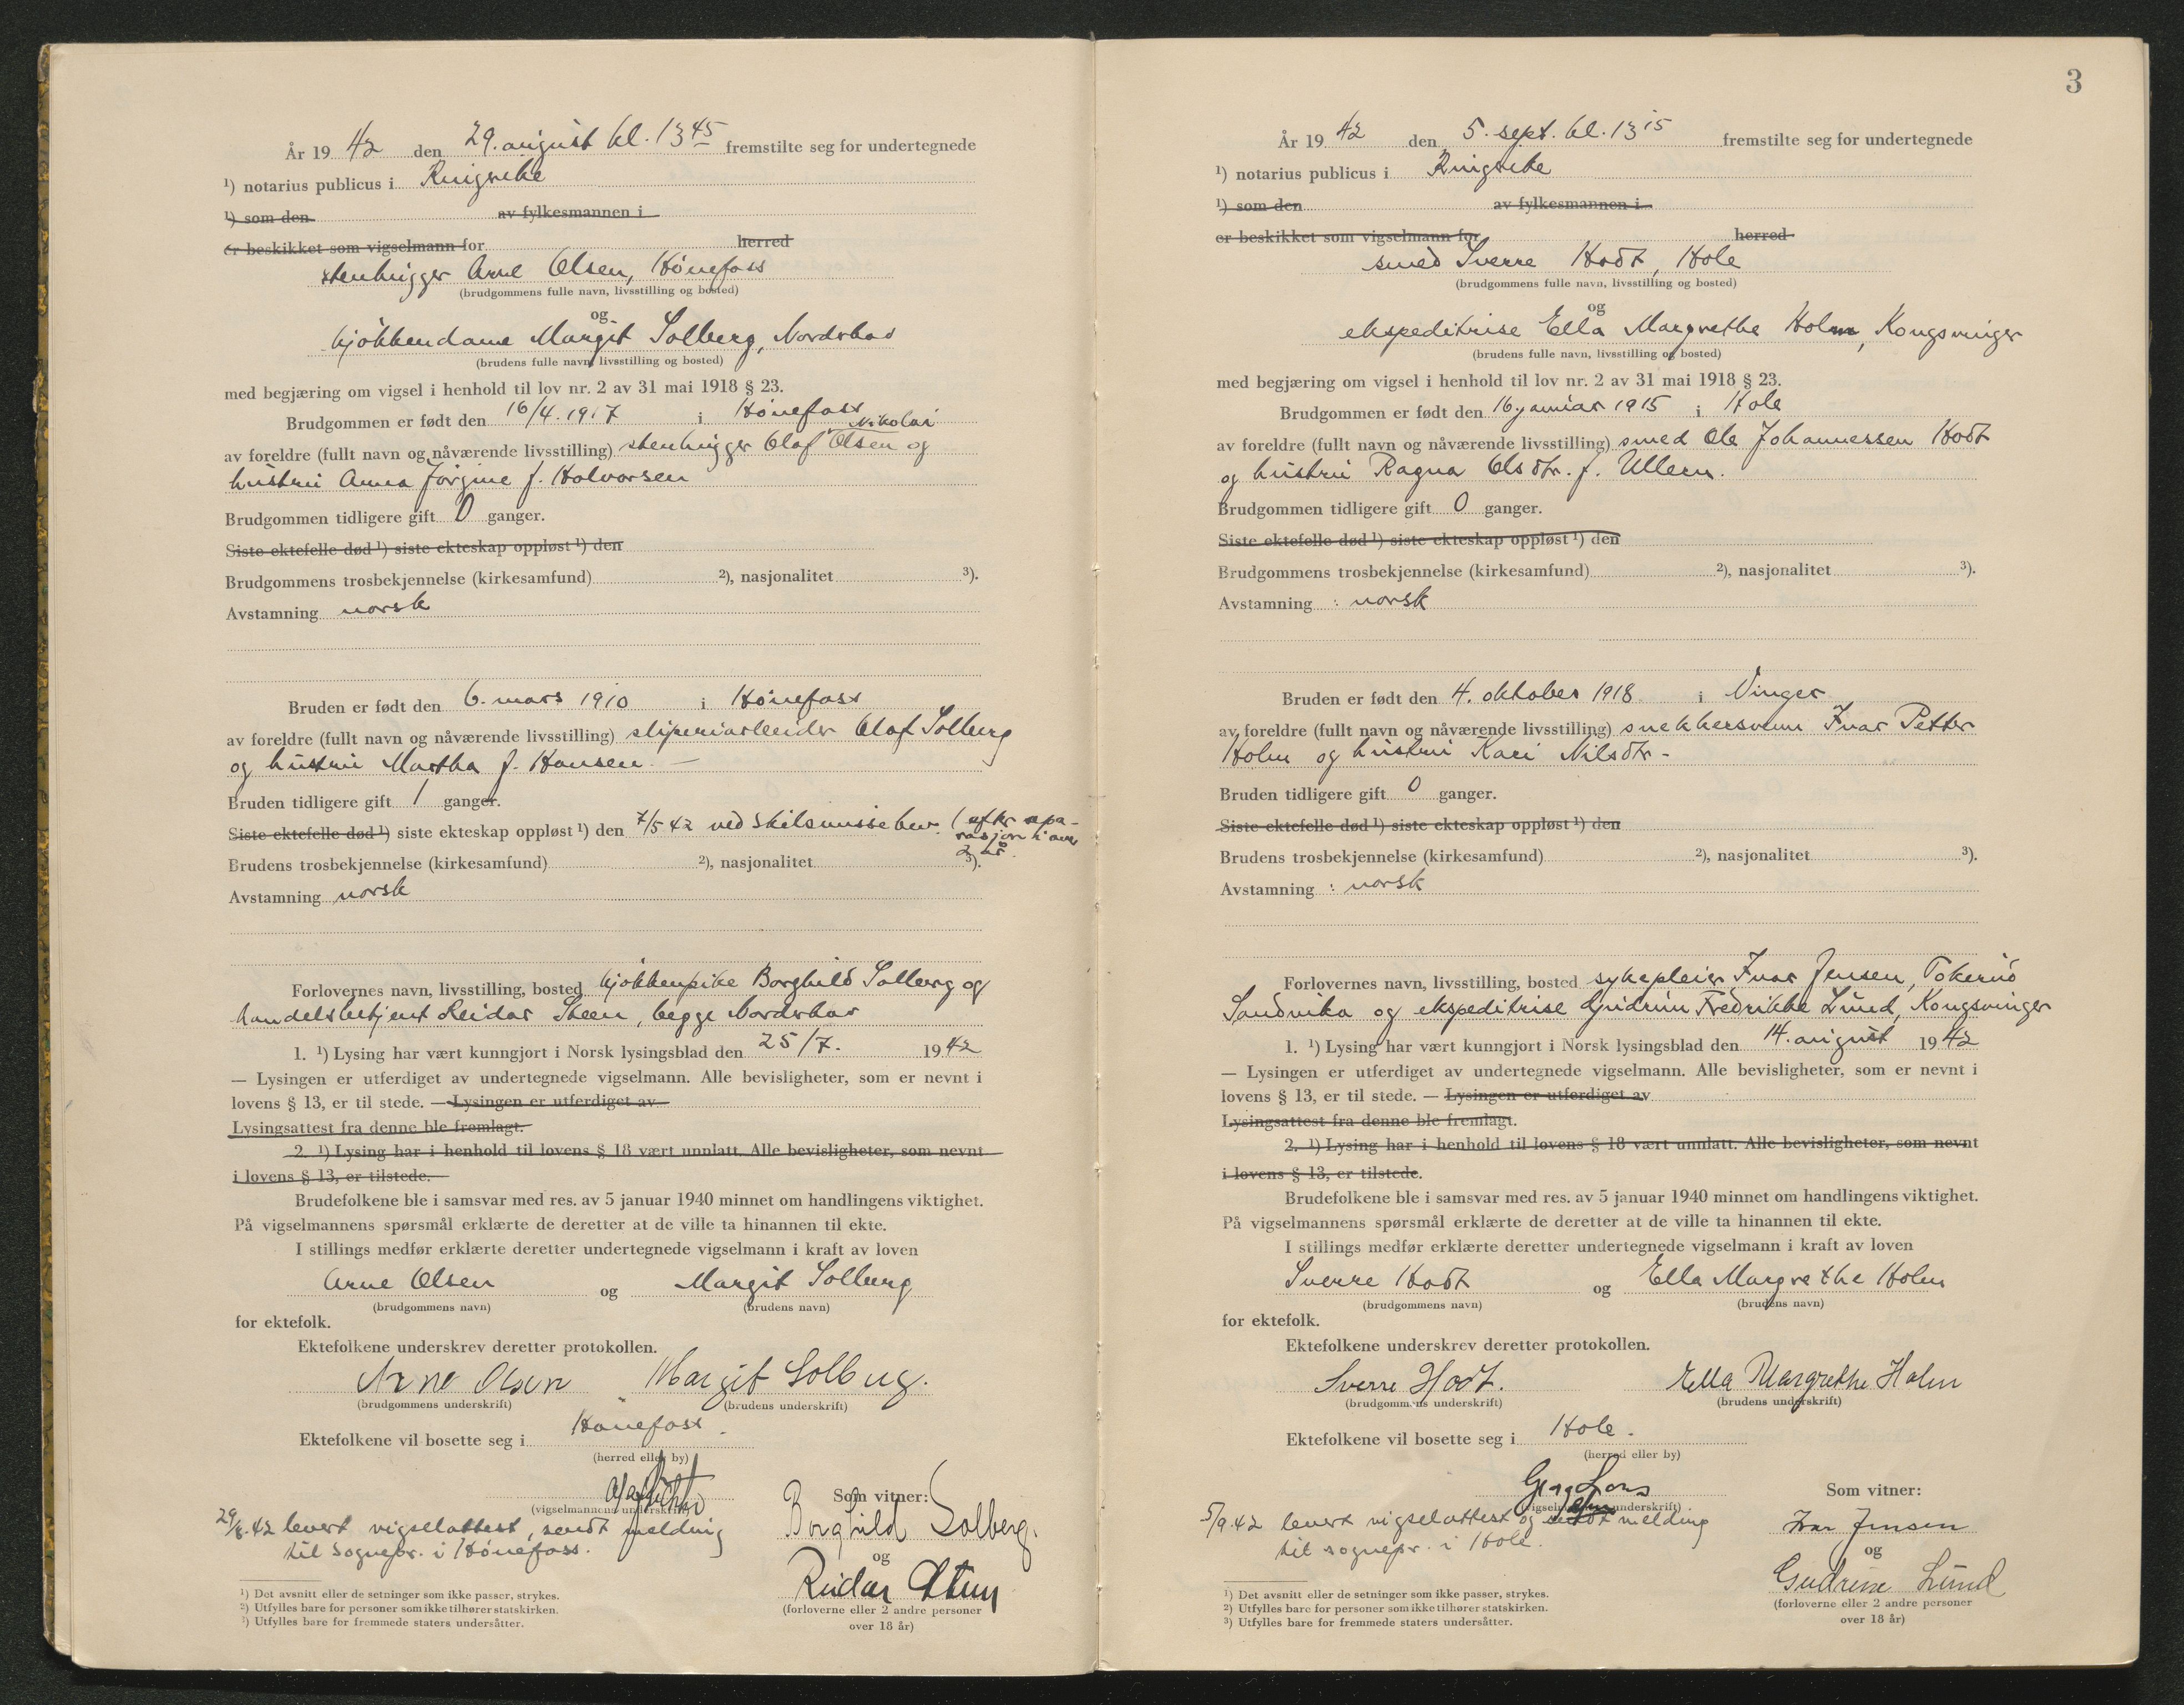 År 19 42 den 29. august kl. 13 45 fremstilte seg for undertegnede
¹) notarius publicus i Ringerike
¹) som den av fylkesmannen i
er beskikket som vigselmann for herred
stenhugger Arne Olsen, Hönefoss
(brudgommens fulle navn, livsstilling og bosted)
og
kjökkendame Margit Solberg, Norderhov
(brudens fulle navn, livsstilling og bosted)
med begjæring om vigsel i henhold til lov nr. 2 av 31 mai 1918 § 23.
Brudgommen er født den 16/4. 1917 i Hönefoss
Nikolai
av foreldre (fullt navn og nåværende livsstilling) stenhugger Olaf Olsen og
hustru Anna Jörgine f. Halvorsen
Brudgommen tidligere gift 0 ganger.
Siste ektefelle død ¹) siste ekteskap oppløst ¹) den
Brudgommens trosbekjennelse (kirkesamfund) ²), nasjonalitet ³).
Avstamning norsk
Bruden er født den 6. mars 1910 i Hönefoss
av foreldre (fullt navn og nåværende livsstilling) sliperiarbeider Olaf Solberg
og hustru Martha f. Hansen. —
Bruden tidligere gift 1 ganger.
Siste ektefelle død ¹) siste ekteskap oppløst ¹) den 7/5 42 ved skilsmissebev. (efter sepa-
rasjon i over
2 år.
Brudens trosbekjennelse (kirkesamfund) ²), nasjonalitet ³).
Avstamning norsk
Forlovernes navn, livsstilling, bosted kjökkenpike Borghild Solberg og
handelsbetjent Reidar Steen, begge Norderhov
1. ¹) Lysing har vært kunngjort i Norsk lysingsblad den 25/7. 19 42
— Lysingen er utferdiget av undertegnede vigselmann. Alle bevisligheter, som er nevnt i
lovens § 13, er til stede. — Lysingen er utferdiget av
Lysingsattest fra denne ble fremlagt.
2. ¹) Lysing har i henhold til lovens § 18 vært unnlatt. Alle bevisligheter, som nevnt
i lovens § 13, er tilstede.
Brudefolkene ble i samsvar med res. av 5 januar 1940 minnet om handlingens viktighet.
På vigselmannens spørsmål erklærte de deretter at de ville ta hinannen til ekte.
I stillings medfør erklærte deretter undertegnede vigselmann i kraft av loven
Arne Olsen og Margit Solberg
(brudgommens navn) (brudens navn)
for ektefolk.
Ektefolkene underskrev deretter protokollen.
Arne Olsen Margit Solberg.
(brudgommens underskrift) (brudens underskrift)
Ektefolkene vil bosette seg i Hönefoss.
(herred eller by)
(vigselmannens underskrift)
Som vitner:
29/8.42 levert vigselattest, sendt melding
til sognepr. i Hönefoss.
Borghild Solberg.
og
Reidar Steen
(forloverne eller 2 andre personer
over 18 år)
¹) Det avsnitt eller de setninger som ikke passer, strykes.
²) Utfylles bare for personer som ikke tilhører statskirken.
³) Utfylles bare for fremmede staters undersåtter.
3
År 19 42 den 5. sept. kl. 13 15 fremstilte seg for undertegnede
¹) notarius publicus i Ringerike
¹) som den av fylkesmannen i
er beskikket som vigselmann for herred
smed Sverre Hodt, Hole
(brudgommens fulle navn, livsstilling og bosted)
og
ekspeditrise Ella Margrethe Holm, Kongsvinger
(brudens fulle navn, livsstilling og bosted)
med begjæring om vigsel i henhold til lov nr. 2 av 31 mai 1918 § 23.
Brudgommen er født den 16. januar 1915 i Hole
av foreldre (fullt navn og nåværende livsstilling) smed Ole Johannessen Hodt
og hustru Ragna Olsdtr. f. Ullern.
Brudgommen tidligere gift 0 ganger.
Siste ektefelle død ¹) siste ekteskap oppløst ¹) den
Brudgommens trosbekjennelse (kirkesamfund) ²), nasjonalitet ³).
Avstamning : norsk
Bruden er født den 4. oktober 1918 i Vinger
av foreldre (fullt navn og nåværende livsstilling) snekkersvenn Ivar Petter
Holm og hustru Kari Nilsdtr -
Bruden tidligere gift 0 ganger.
Siste ektefelle død ¹) siste ekteskap oppløst ¹) den
Brudens trosbekjennelse (kirkesamfund) ²), nasjonalitet ³).
Avstamning : norsk
Forlovernes navn, livsstilling, bosted sykepleier Ivar Jensen, Tokerud
Sandvika og ekspeditrise Gudrun Fredrikke Lund, Kongsvinger
1. ¹) Lysing har vært kunngjort i Norsk lysingsblad den 14. august 19 42
— Lysingen er utferdiget av undertegnede vigselmann. Alle bevisligheter, som er nevnt i
lovens § 13, er til stede. — Lysingen er utferdiget av
Lysingsattest fra denne ble fremlagt.
2. ¹) Lysing har i henhold til lovens § 18 vært unnlatt. Alle bevisligheter, som nevnt
i lovens § 13, er tilstede.
Brudefolkene ble i samsvar med res. av 5 januar 1940 minnet om handlingens viktighet.
På vigselmannens spørsmål erklærte de deretter at de ville ta hinannen til ekte.
I stillings medfør erklærte deretter undertegnede vigselmann i kraft av loven
Sverre Hodt og Ella Margrethe Holm
(brudgommens navn) (brudens navn)
for ektefolk.
Ektefolkene underskrev deretter protokollen.
Sverre Hodt. Ella Margrethe Holm
(brudgommens underskrift) (brudens underskrift)
Ektefolkene vil bosette seg i Hole.
(herred eller by)
(vigselmannens underskrift)
Som vitner:
5/9.42 levert vigselattest og sendt melding
til sognepr. i Hole.
Ivar Jensen
og
Gudrun Lund
(forloverne eller 2 andre personer
over 18 år)
¹) Det avsnitt eller de setninger som ikke passer, strykes.
²) Utfylles bare for personer som ikke tilhører statskirken.
³) Utfylles bare for fremmede staters undersåtter.